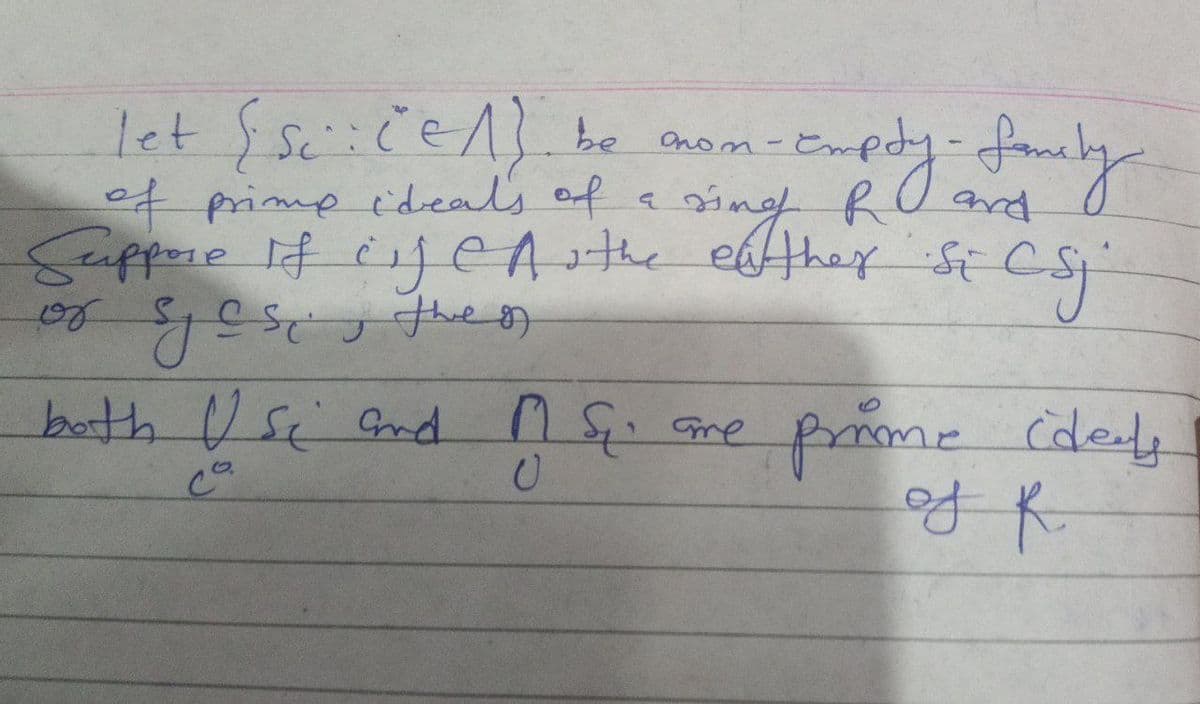 let {Si : i ∈ Λ} be non-empty-family
of prime ideals of a ring R and
Suppose If i,j ∈ Λ, the either Si ⊂ Sj
or Sj ⊆ Si, then
both ∪ Si and ∩ Si are prime ideals
i
of R